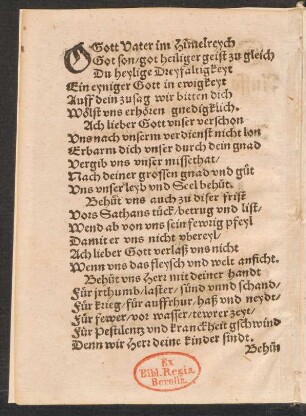 O Gott Vater im Hümelreych
Got son/got heiliger geist zu gleich
Du heylige Dreyfaltigkeyt
Ein eyniger Gott in ewigkeyt
Auff dein zusag wir bitten dich
Wölst vns erhören gnedigklich.
Ach lieber Gott vnser verschon
Vns nach vnserm verdienst nicht lon
Erbarm dich vnser durch dein gnad
Vergib vns vnser missethat/
Nach deiner grossen gnad vnd güt
Vns vnser leyb vnd Seel behüt.
Behüt vns auch zu diser frist
Vors Sathans tück/betrug vnd list/
Wend ab von vns sein fewrig pfeyl
Damit er vns nicht vbereyl/
Ach lieber Gott verlaß vns nicht
Wenn vns das fleysch vnd welt anficht.
Behüt vns Herr mit deiner handt
Für jrthumb/laster/sünd vnnd schand/
Für krieg/für auffrhur/haß vnd neydt/
Für fewer/vor wasser/tewrer zeyt/
Für Pestilentz vnd kranckheit gschwind
Denn wir Herr deine kinder sindt.
Behüt
Ex
Bibl. Regia
Berolin.